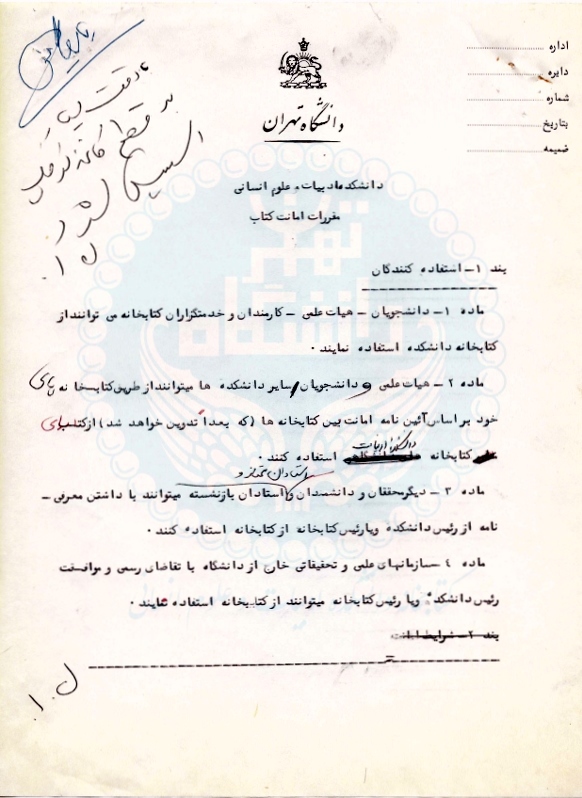 اداره
دایره
شماره
بتاریخ
ضمیمه
دانشگاه تهران
دانشکده ادبیات و علوم انسانی
مقررات امانت کتاب
بند ۱- استفاده کنندگان
ماده ۱- دانشجویان - هیات علمی - کارمندان و خدمتگزاران کتابخانه می توانند از
کتابخانه دانشکده استفاده نمایند ۰
ماده ۲- هیات علمی و دانشجویان سایر دانشکده ها میتوانند از طریق کتابخانه های
خود بر اساس آئین نامه امانت بین کتابخانه ها (که بعداً تدوین خواهد شد) از کتابهای
دانشکده ادبیات
کتابخانه استفاده کنند ۰
استادان ممتاز و
ماده ۳- دیگر محققان و دانشمندان و استادان بازنشسته میتوانند با داشتن معرفی -
نامه از رئیس دانشکده ویا رئیس کتابخانه از کتابخانه استفاده کنند ۰
ماده ٤- سازمانهای علمی و تحقیقاتی خارج از دانشگاه با تقاضای رسمی و موافقت
رئیس دانشکده ویا رئیس کتابخانه میتوانند از کتابخانه استفاده نمایند ۰
بند ۲- شرایط امانت